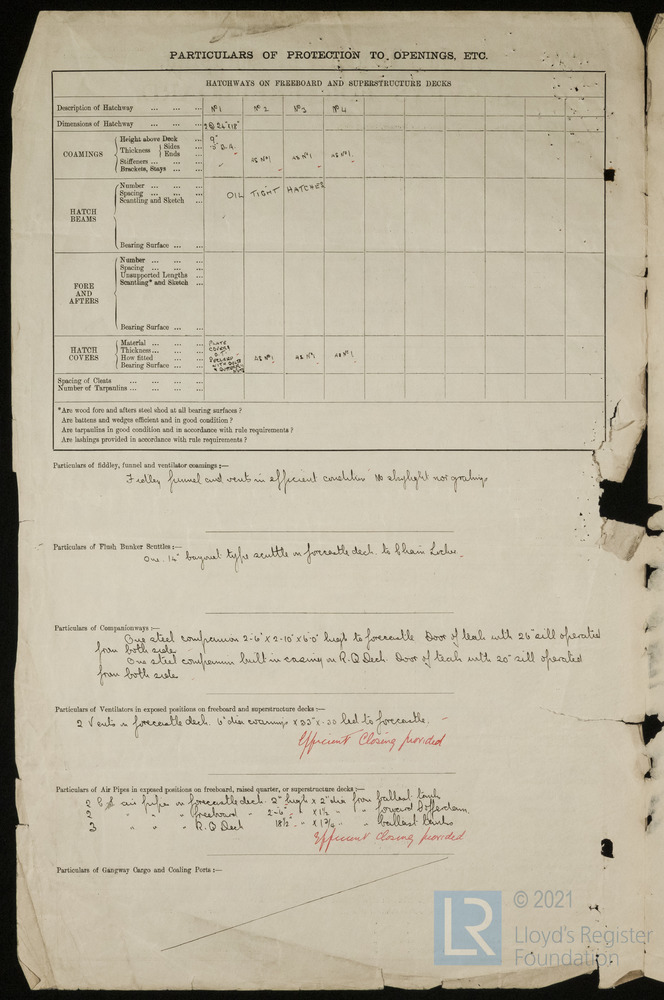 PARTICULARS OF PROTECTION TO OPENINGS, ETC.
HATCHWAYS ON FREEBOARD AND SUPERSTRUCTURE DECKS
Description of Hatchway ... ... ... No 1 No 2 No 3 No 4
Dimensions of Hatchway ... ... ... 2 @ 26"x18"
COAMINGS
Height above Deck ... 9"
Thickness { Sides ...
Ends ...
Stiffeners ... ... ... as No 1 as No 1 as No 1
Brackets, Stays ... ...
HATCH BEAMS
Number ... ... ...
Spacing ... ... ...
Scantling and Sketch ... OIL TIGHT HATCHES
Bearing Surface ... ...
FORE AND AFTERS
Number ... ... ...
Spacing ... ... ...
Unsupported Lengths ...
Scantling* and Sketch ...
Bearing Surface ... ...
HATCH COVERS
Material ... ... ... PLATE
Thickness... ... ... COVERS
How fitted ... ... as No 1 as No 1 as No 1
Bearing Surface ... ... WITH BOLTS
Spacing of Cleats ... ... ... ...
Number of Tarpaulins ... ... ... ...
*Are wood fore and afters steel shod at all bearing surfaces ?
Are battens and wedges efficient and in good condition ?
Are tarpaulins in good condition and in accordance with rule requirements ?
Are lashings provided in accordance with rule requirements ?
Particulars of fiddley, funnel and ventilator coamings :—
Fidley funnel and vents in efficient condition No skylight nor gratings
Particulars of Flush Bunker Scuttles :—
One 14" bayonet type scuttle on forecastle deck to Chain Locker
Particulars of Companionways :—
One steel companion 2-6" x 2-10" x 6'0" high to forecastle Door of teak with 26" sill operated
from both side
One steel companion built in casing on R.Q. Deck. Door of teak with 20" sill operated
from both side
Particulars of Ventilators in exposed positions on freeboard and superstructure decks :—
2 Vents on forecastle deck. 6" dia coamings x 33" x .30 led to forecastle.
Efficient Closing provided
Particulars of Air Pipes in exposed positions on freeboard, raised quarter, or superstructure decks :—
2 air pipes on forecastle deck. 2" high x 2" dia from ballast tank
2 " " " freeboard " 2-6 " " x 1½ " " forward Cofferdam
3 " " " R.Q Deck 18½" " " x 1¾ " " ballast tanks
Efficient Closing provided
Particulars of Gangway Cargo and Coaling Ports :—
LR
© 2021
Lloyd's Register
Foundation